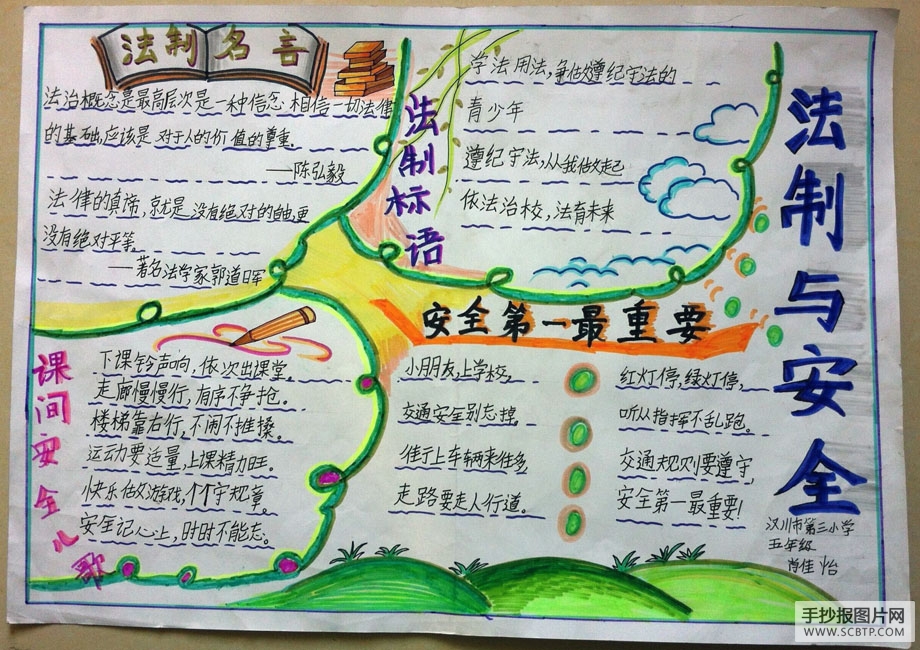 法制名言
法治概念是最高层次是一种信念,相信一切法律
的基础,应该是对于人的价值的尊重。
——陈弘毅
法律的真谛,就是没有绝对的自由,更
没有绝对平等。
——著名法学家郭道晖
法制标语
学法用法,争做遵纪守法的
青少年
遵纪守法,从我做起
依法治校,法育未来
法制与安全
课间安全儿歌
下课铃声响,依次出课堂。
走廊慢慢行,有序不争抢。
楼梯靠右行,不闹不推搡。
运动要适量,上课精力旺。
快乐做游戏,个个守规章。
安全记心上,时时不能忘。
安全第一最重要
小朋友,上学校,
交通安全别忘掉。
街上车辆来往多,
走路要走人行道。
红灯停,绿灯停,
听从指挥不乱跑。
交通规则要遵守,
安全第一最重要!
汉川市第三小学
五年级
肖佳怡
手抄报图片网
WWW.SCBTP.COM